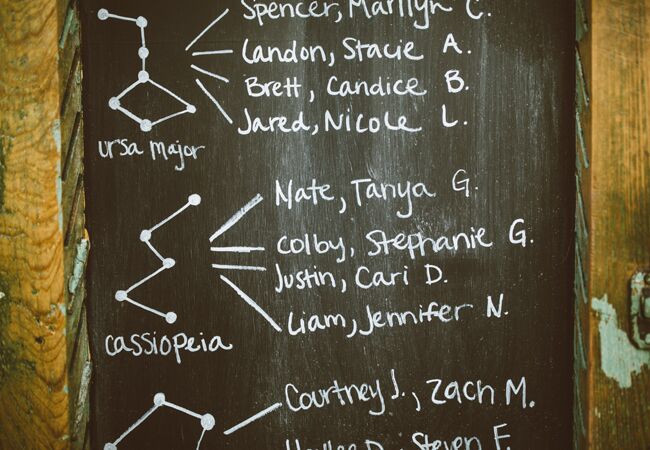 Spencer, Marilyn C.
Landon, Stacie A.
Brett, Candice B.
Jared, Nicole L.
ursa major
Nate, Tanya G.
Colby, Stephanie G.
Justin, Cari D.
Liam, Jennifer N.
cassiopeia
Courtney J., Zach M.
Steven F.